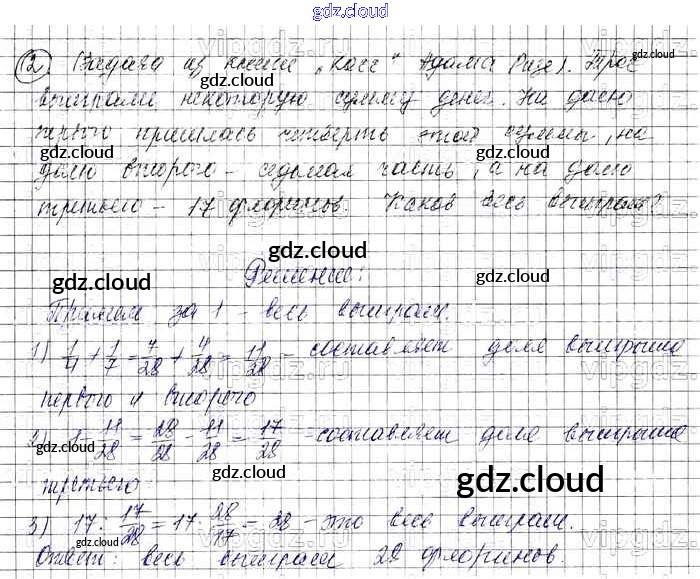 gdz.cloud
2) Задача из книги „Косс“ Адама Ризе). Трое
выиграли некоторую сумму денег. На долю
первого пришлась четверть этой суммы, на
долю второго - седьмая часть, а на долю
третьего - 17 флоринов. Каков весь выигрыш?
Решение:
Примем за 1 - весь выигрыш.
1) 1/4 + 1/7 = 7/28 + 4/28 = 11/28 - составляет доля выигрыша
первого и второго
2) 1 - 11/28 = 28/28 - 11/28 = 17/28 - составляет доля выигрыша
третьего
3) 17 : 17/28 = 17 · 28/17 = 28 - это весь выигрыш.
Ответ: весь выигрыш 28 флоринов.